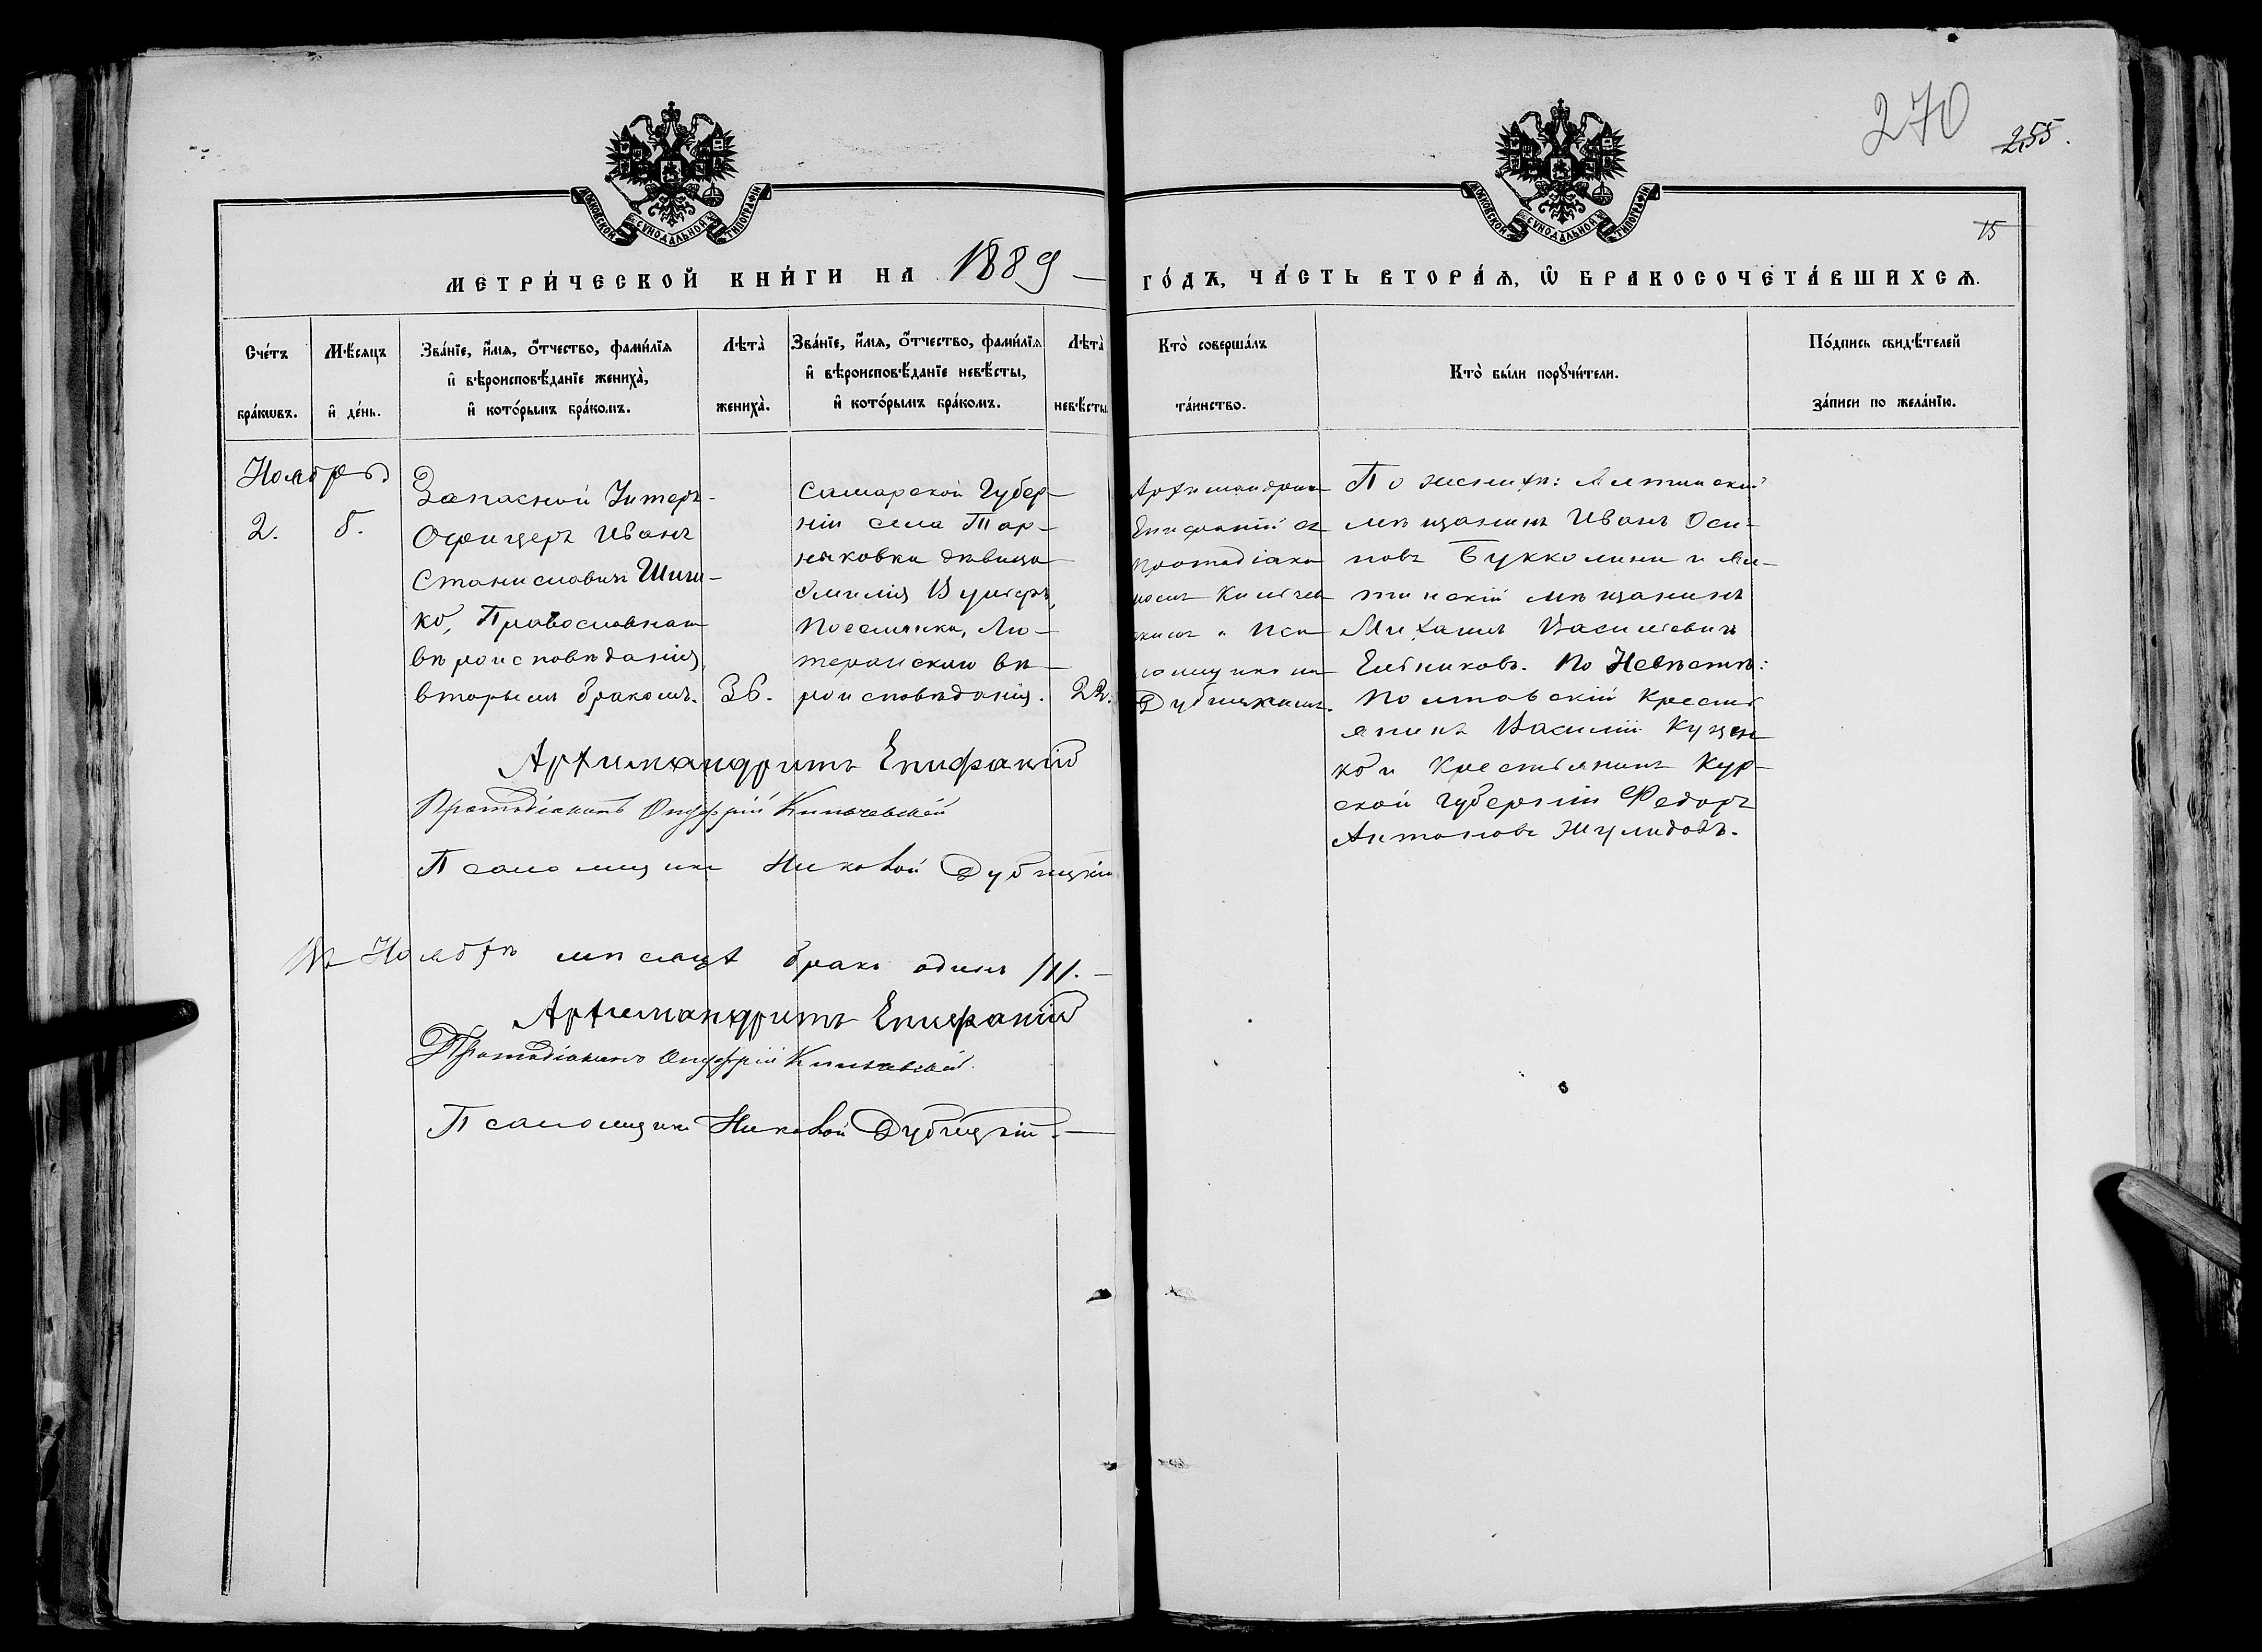 270
255.
15
МОСКОВСКОЙ СѴНОДАЛЬНОЙ ТИПОГРАФІИ
МОСКОВСКОЙ СѴНОДАЛЬНОЙ ТИПОГРАФІИ
МЕТРИ́ЧЕСКОЙ КНИ́ГИ НА 1889 ГО́ДЪ, ЧА́СТЬ ВТОРА́Ѧ, Ѿ БРАКОСОЧЕТА́ВШИХСѦ.
Сче́тъ
бра́кѡвъ.
Мѣ́сяцъ
и҆ де́нь.
Зва́нїе, и҆́мѧ, ѻ҆́тчество, фами́лїѧ
и҆ вѣроисповѣ́данїе жениха̀,
и҆ кото́рымъ бра́комъ.
Лѣта̀
жениха̀.
Зва́нїе, и҆́мѧ, ѻ҆́тчество, фами́лїѧ
и҆ вѣроисповѣ́данїе невѣ́сты,
и҆ кото́рымъ бра́комъ.
Лѣта̀
невѣ́сты
Кто̀ соверша́лъ
та́инство.
Кто̀ бы́ли порꙋчи́тели.
По́дпись свидѣ́телей
за́писи по жела́нїю.
Ноябрь
2.
5.
Запасной Унтеръ-
Офицеръ Иванъ
Станиславичъ Шиш-
ко, Православнаго
вѣроисповѣданія,
вторымъ бракомъ.
36.
Самарской Губер-
ніи села Тар-
лыковки дѣвица
Эмилія Вунберъ,
поселянка, Лю-
теранскаго вѣ-
роисповѣданія.
22.
Архимандритъ
Епифаній съ
протодіако-
номъ Кильчев-
скимъ и Пса-
ломщикомъ
Дубицкимъ.
По женихѣ: Ялтинскій
мѣщанинъ Иванъ Оси-
повъ Букколини и Ял-
тинскій мѣщанинъ
Михаилъ Васильевичъ
Ельниковъ. По Невѣстѣ:
Полтавскій крестья-
янинъ Василій Куцен-
ко и крестьянинъ Кур-
ской губерніи Федоръ
Антоновъ Жулидовъ.
Архимандритъ Епифаній
Протодіаконъ Онуфрій Кильчевскій
Псаломщикъ Николай Дубицкій
Въ Ноябрѣ мѣсяцѣ бракъ одинъ /1/.-
Архимандритъ Епифаній
Протодіаконъ Онуфрій Кильчевскій.
Псаломщикъ Николай Дубицкій.